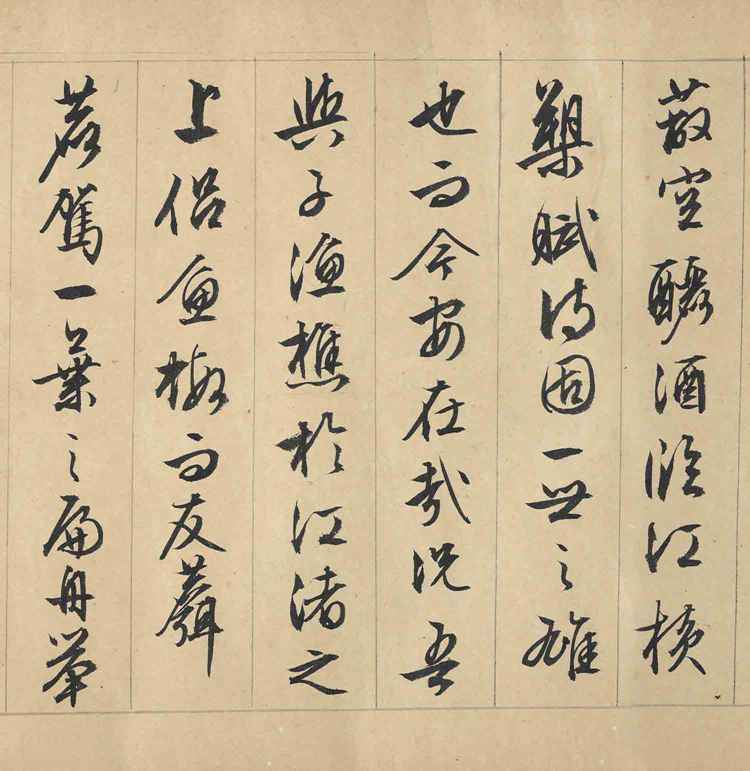 蔽空釃酒臨江橫
槊賦詩固一世之雄
也而今安在哉況吾
與子漁樵於江渚之
上侶魚蝦而友麋
鹿駕一葉之扁舟舉